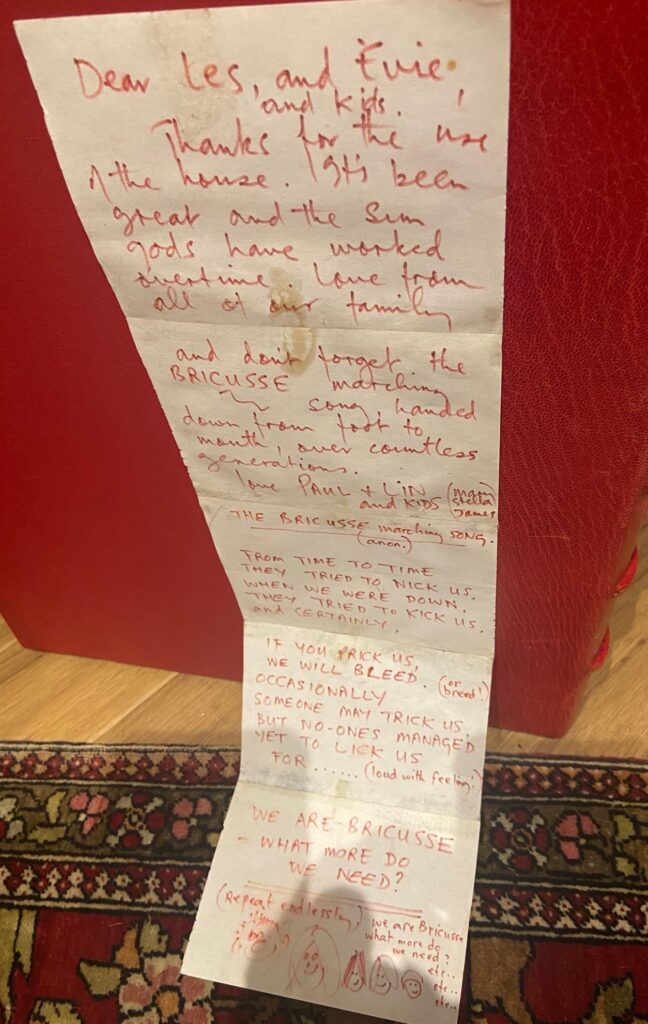 Dear Les, and Evie
and kids. !
Thanks for the use
of the house. It's been
great and the Sun
gods have worked
overtime. Love from
all of our family
and don't forget the
BRICUSSE marching
song, handed
down from foot to
mouth, over countless
generations.
love PAUL + LIN
and KIDS (mary
stella
James
THE BRICUSSE marching SONG.
(anon.)
FROM TIME TO TIME
THEY TRIED TO NICK US.
WHEN WE WERE DOWN.
THEY TRIED TO KICK US.
and CERTAINLY,
IF YOU PRICK US,
WE WILL BLEED. (or
breed!)
OCCASIONALLY
SOMEONE MAY TRICK US.
BUT NO-ONES MANAGED
YET TO LICK US
FOR ...... (loud with feeling!)
WE ARE BRICUSSE
- WHAT MORE DO
WE NEED?
(Repeat endlessly)
we are Bricusse
what more do
we need?
etc..
etc..
etc..